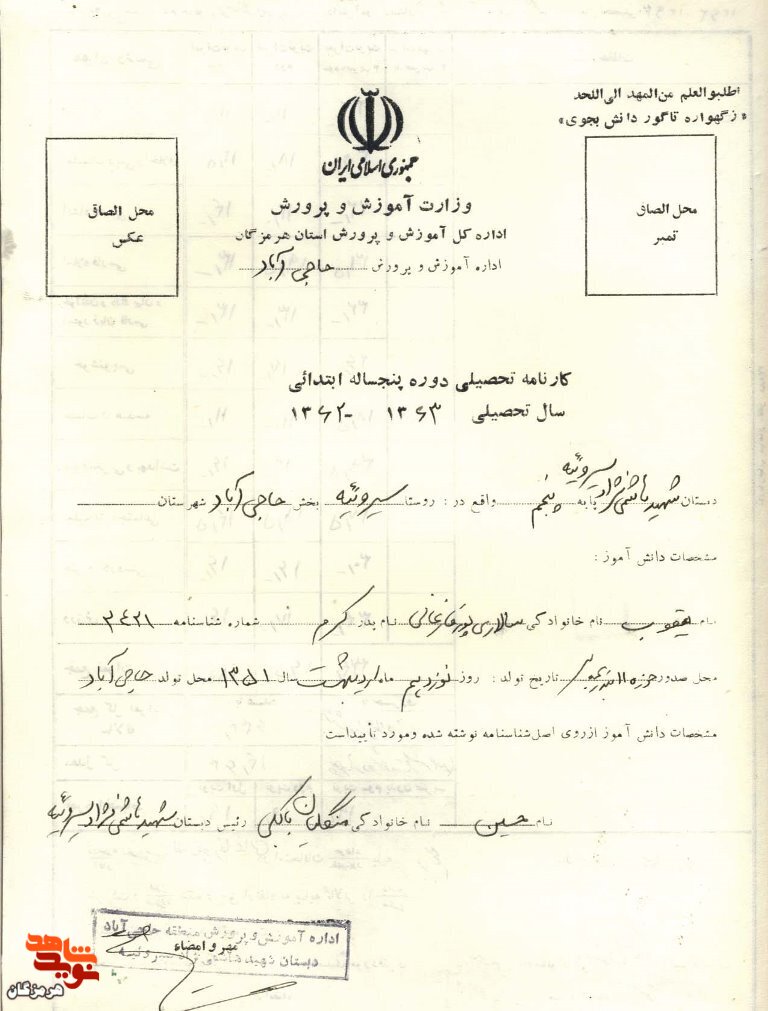 اطلبوالعلم من‌المهد الی‌اللحد
«زگهواره تاگور دانش بجوی»
جمهوری اسلامی ایران
وزارت آموزش و پرورش
اداره کل آموزش و پرورش استان هرمزگان
اداره آموزش و پرورش حاجی آباد
محل الصاق
تمبر
محل الصاق
عکس
کارنامه تحصیلی دوره پنجساله ابتدائی
سال تحصیلی ۱۳۶۳ - ۱۳۶۲
دبستان شهید هاشمی نژاد سیروئیه پایه پنجم واقع در : روستا سیروئیه بخش حاجی آباد شهرستان
مشخصات دانش آموز :
نام یعقوب نام خانوادگی سالاری پور نام پدر کرم شماره شناسنامه ۳۴۲۱
محل صدور حوزه ۱۱ تاریخ تولد : روز نوزدهم ماه اردیبهشت سال ۱۳۵۱ محل تولد حاجی آباد
مشخصات دانش آموز ازروی اصل شناسنامه نوشته شده ومورد تاییداست
نام حسین نام خانوادگی رئیس دبستان شهید هاشمی نژاد سیروئیه
اداره آموزش و پرورش منطقه حاجی آباد
مهر و امضاء
دبستان شهید هاشمی نژاد سیروئیه
نوید شاهد
هرمزگان